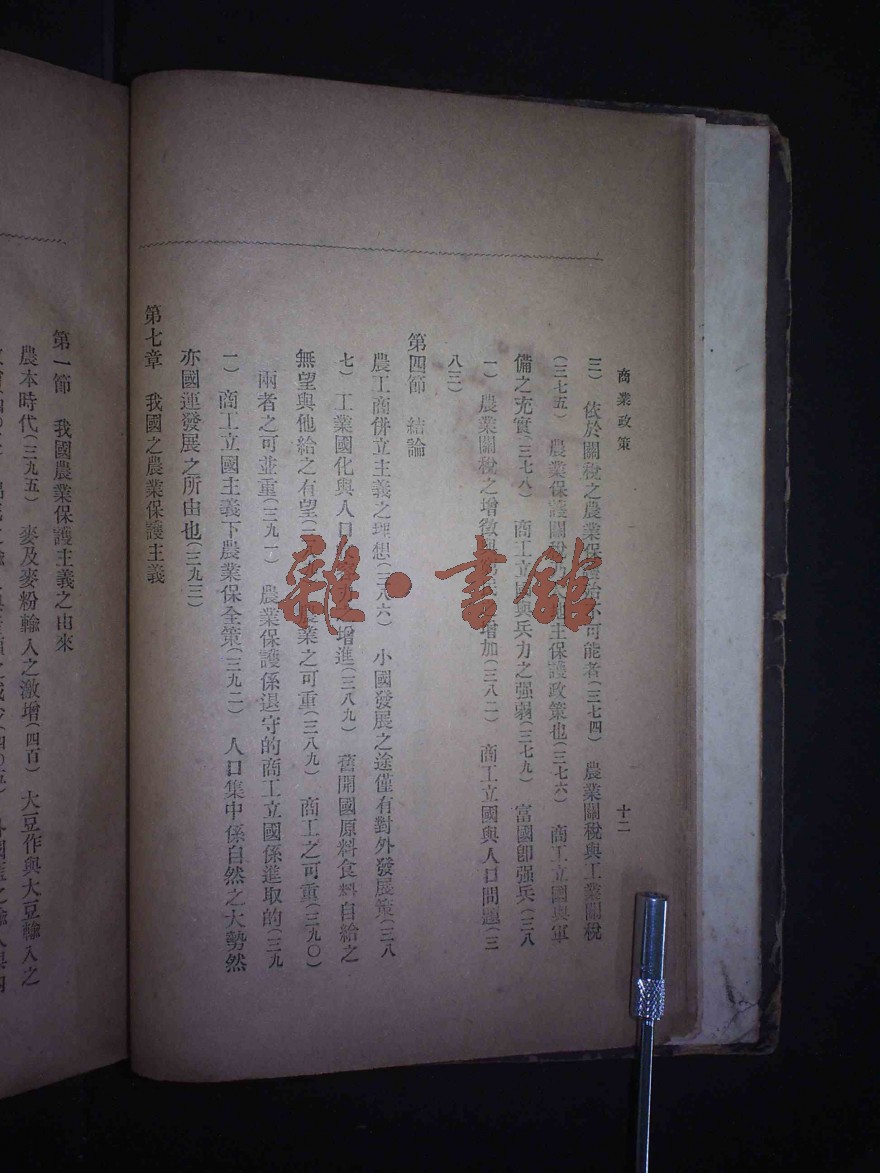 商業政策
十二
三）　依於關稅之農業保 不可能者（三七四）　農業關稅與工業關稅
（三七五）　農業保護關稅 保護政策也（三七六）　商工立國與軍
備之充實（三七八）　商工立國與兵力之强弱（三七九）　富國卽强兵（三八
一）　農業關稅之增徵 增加（三八二）　商工立國與人口問題（三
八三）
第四節　結論
農工商併立主義之理想（三八六）　小國發展之途僅有對外發展策（三八
七）　工業國化與人口 增進（三八九）　舊開國原料食料自給之
無望與他給之有望 農業之可重（三八九）　商工之可重（三九〇）
兩者之可並重（三九一）　農業保護係退守的商工立國係進取的（三九
一）　商工立國主義下農業保全策（三九二）　人口集中係自然之大勢然
亦國運發展之所由也（三九三）
第七章　我國之農業保護主義
第一節　我國農業保護主義之由來
農本時代（三九五）　麥及麥粉輸入之激增（四百）　大豆作與大豆輸入之
雜·書館